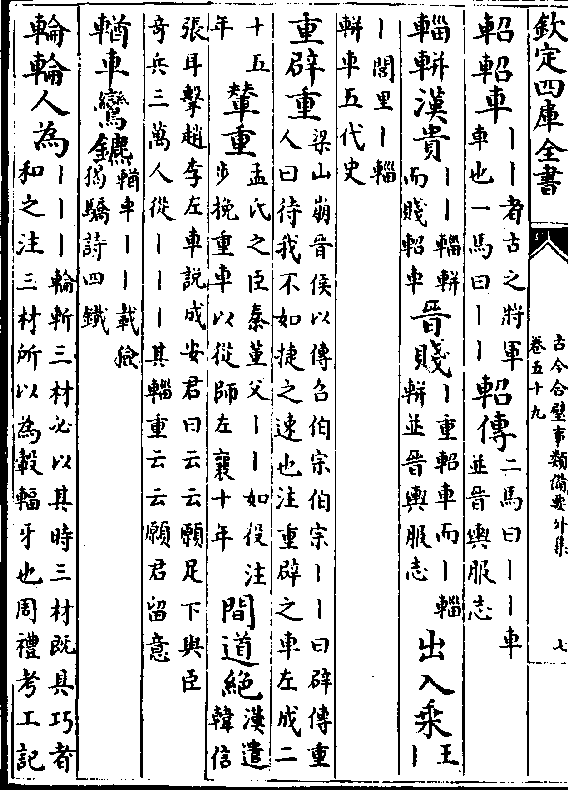 欽定四庫全書
古今合璧事類備要外集
卷五十九
七
軺軺車｜｜者古之將軍車也一馬曰｜｜軺傳二馬曰｜｜車並晉輿服志
輜軿漢貴｜｜輜軿而賤軺車晉賤｜重軺車而｜輜軿並晉輿服志出入乘王｜
｜閭里｜輜軿車五代史
重辟重梁山崩晉侯以傳召伯宗伯宗｜｜曰辟傳重人曰待我不如捷之速也注重辟之車左成二
十五年輦重孟氏之臣秦堇父｜｜如役注步挽重車以從師左襄十年間道絶漢遣韓信
張耳擊趙李左車説成安君曰云云願足下與臣奇兵三萬人從｜｜｜其輜重云云願君留意
輶車鸞鑣輶車｜｜載獫猲驕詩四鐵
輪輪人為｜｜｜輪斬三材必以其時三材既具巧者和之注三材所以為轂輻牙也周禮考工記